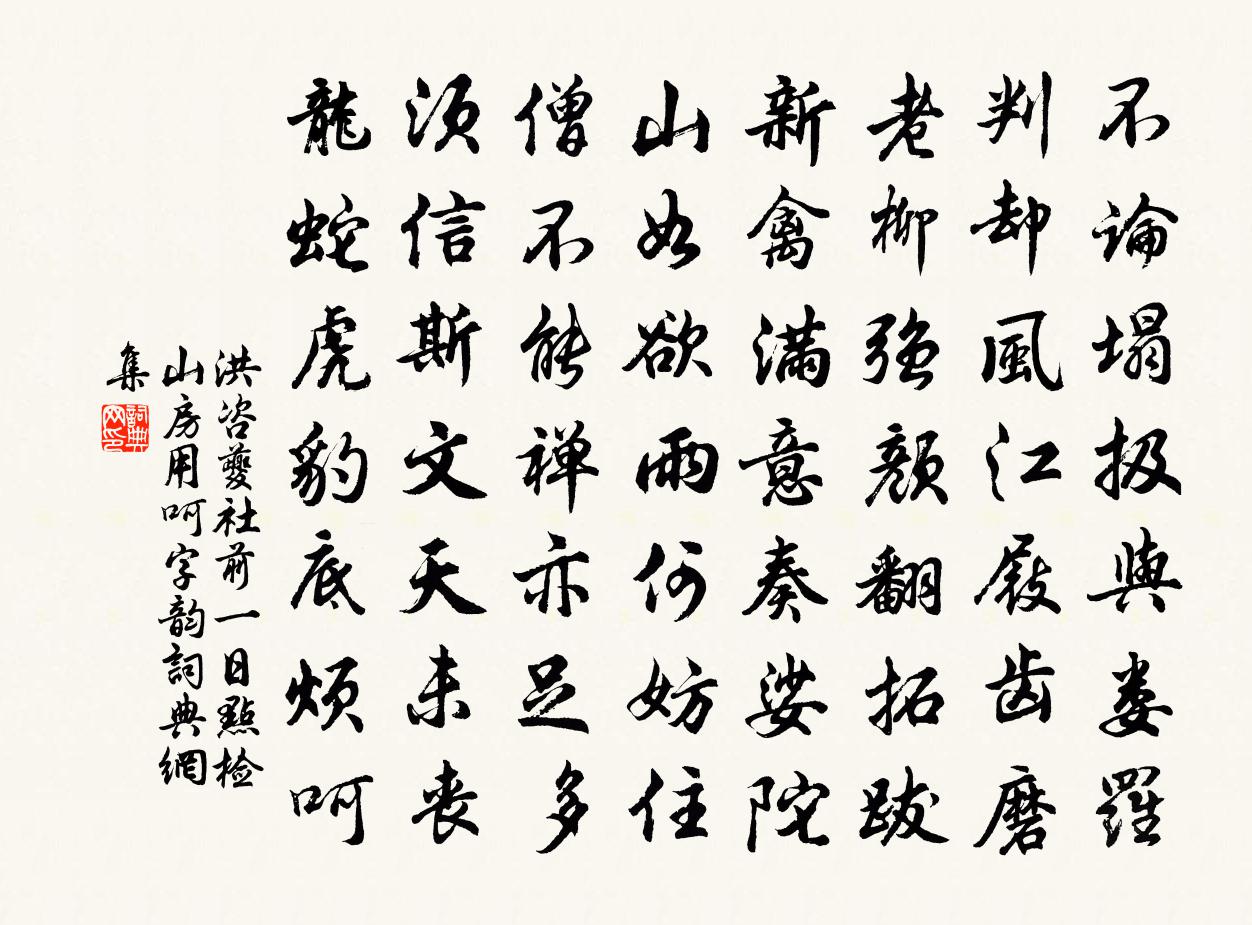 不論塌扱與婁羅
判却風江屐齒磨
老柳強顏翻拓跋
新禽滿意奏娑陀
山如欲雨何妨住
僧不能禅亦足多
須信斯文天未喪
龍蛇虎豹底煩呵
洪咨夔社前一日點檢
山房用呵字韵詞典網
集
詞典网印